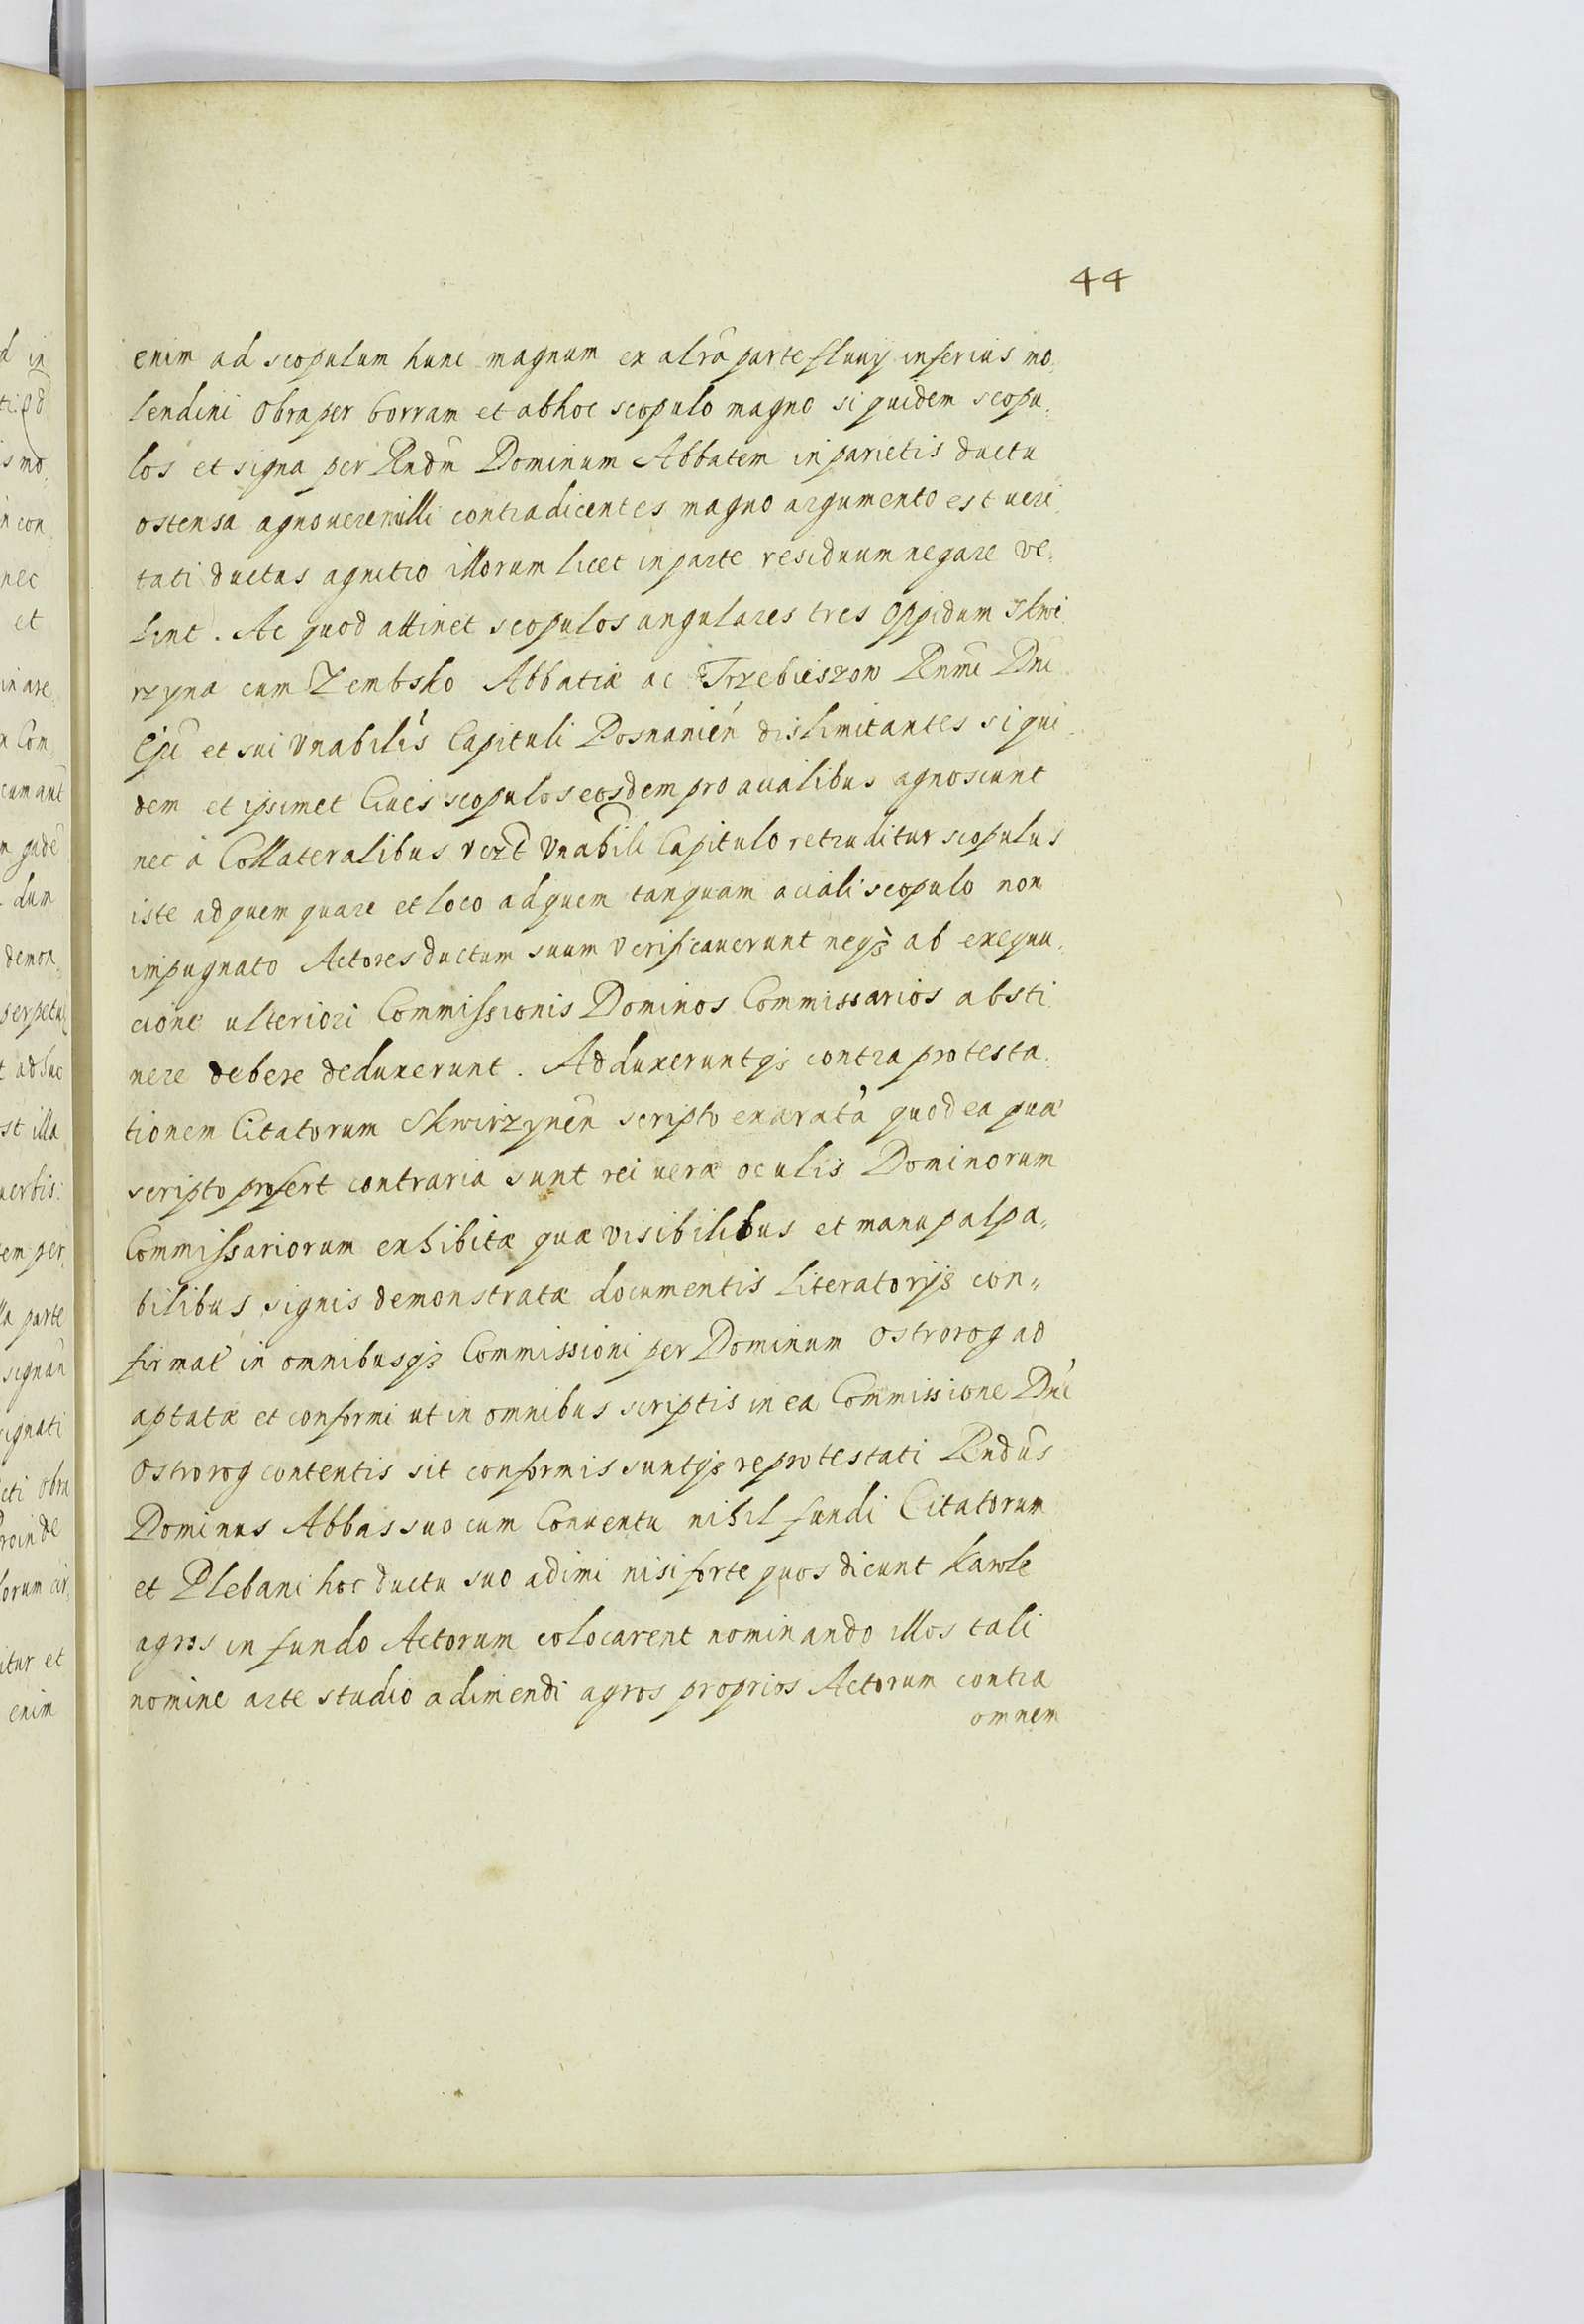 44
enim ad scopulum hunc magnum ex altrã parte fluuy inferius mo,
lendini Obra per borram et ab hoc scopulo magno siquidem scopu,
los et signa per Rndũ Dominum Abbatem in parietis ductu
ostensa agnouere nulli contradicentes magno argumento est ueri,
tati ductus agnitio illorum licet in parte residuum negare ve,
lint. Ac quod attinet scopulos angulares tres Oppidum Skwi
rzyna cum Zembsko Abbatiæ ac Trzebieszow Rnmi Dni
Epi et sui Vnabilis Capituli Posnanien dislimitantes siqui,
dem et ipsimet Ciues scopulos eosdem pro aualibus agnoscunt
nec à Collateralibus Vnabili Capitulo retruditur scopulus
iste ad quem quare et loco ad quem tanquam aciali scopulo non
impugnato Actores ductum suum verificauerunt neqz ab exequu,
cione ulteriori Commissionis Dominos Commissarios absti
nere debere deduxerunt. Adduxeruntqz contra protesta,
tionem Citatorum Skwirzynen scripto enaratà quod ea quæ
scripto profert contraria sunt rei ueræ oculis Dominorum
Commissariorum exhibitæ quæ visibilibus et manu palpa,,
bilibus signis demonstratæ documentis Literatorijs con,,
firmat in omnibusqz Commissioni per Dominum Ostrorog ad
aptatæ et conformi ut in omnibus scriptis in ea Commissione Dni
Ostrorog contentis sit conformis suntqz reprotestati Rndus
Dominus Abbas suo cum Conuentu nihil fundi Citatorum
et Plebani hoc ductu suo adimi nisi forte quos dicunt Kawle
agros in fundo Actorum colocarent nominando illos tali
nomine arte studio adimendi agros proprios Actorum contra
omnem